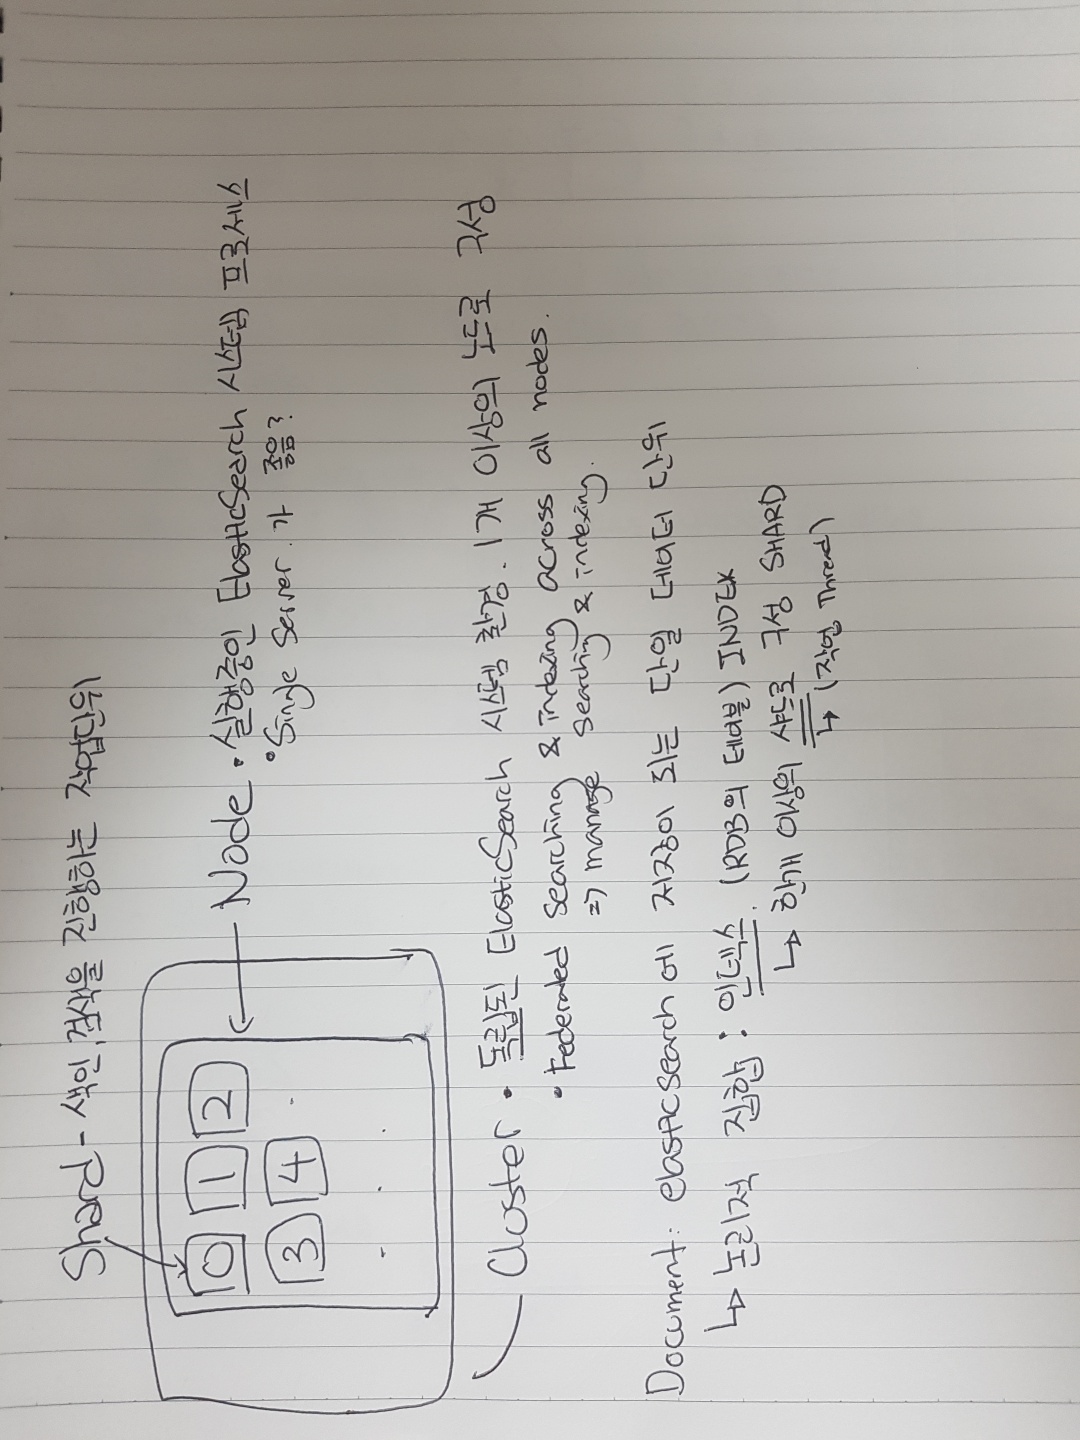 Shard - 색인, 검색을 진행하는 작업단위
0 1 2
3 4
Node • 실행중인 ElasticSearch 시스템 프로세스
• Single Server. 가 좋음?
Cluster • 독립된 ElasticSearch 시스템 환경. 1개 이상의 노드로 구성
• Federated Searching & indexing across all nodes.
⇒ manage searching & indexing.
Document: elasticsearch에 저장이 되는 단일 데이터 단위
↳ 논리적 집합 : 인덱스. (RDB의 테이블) INDEX
↳ 한개 이상의 샤드로 구성 SHARD
↳ (작업 Thread)